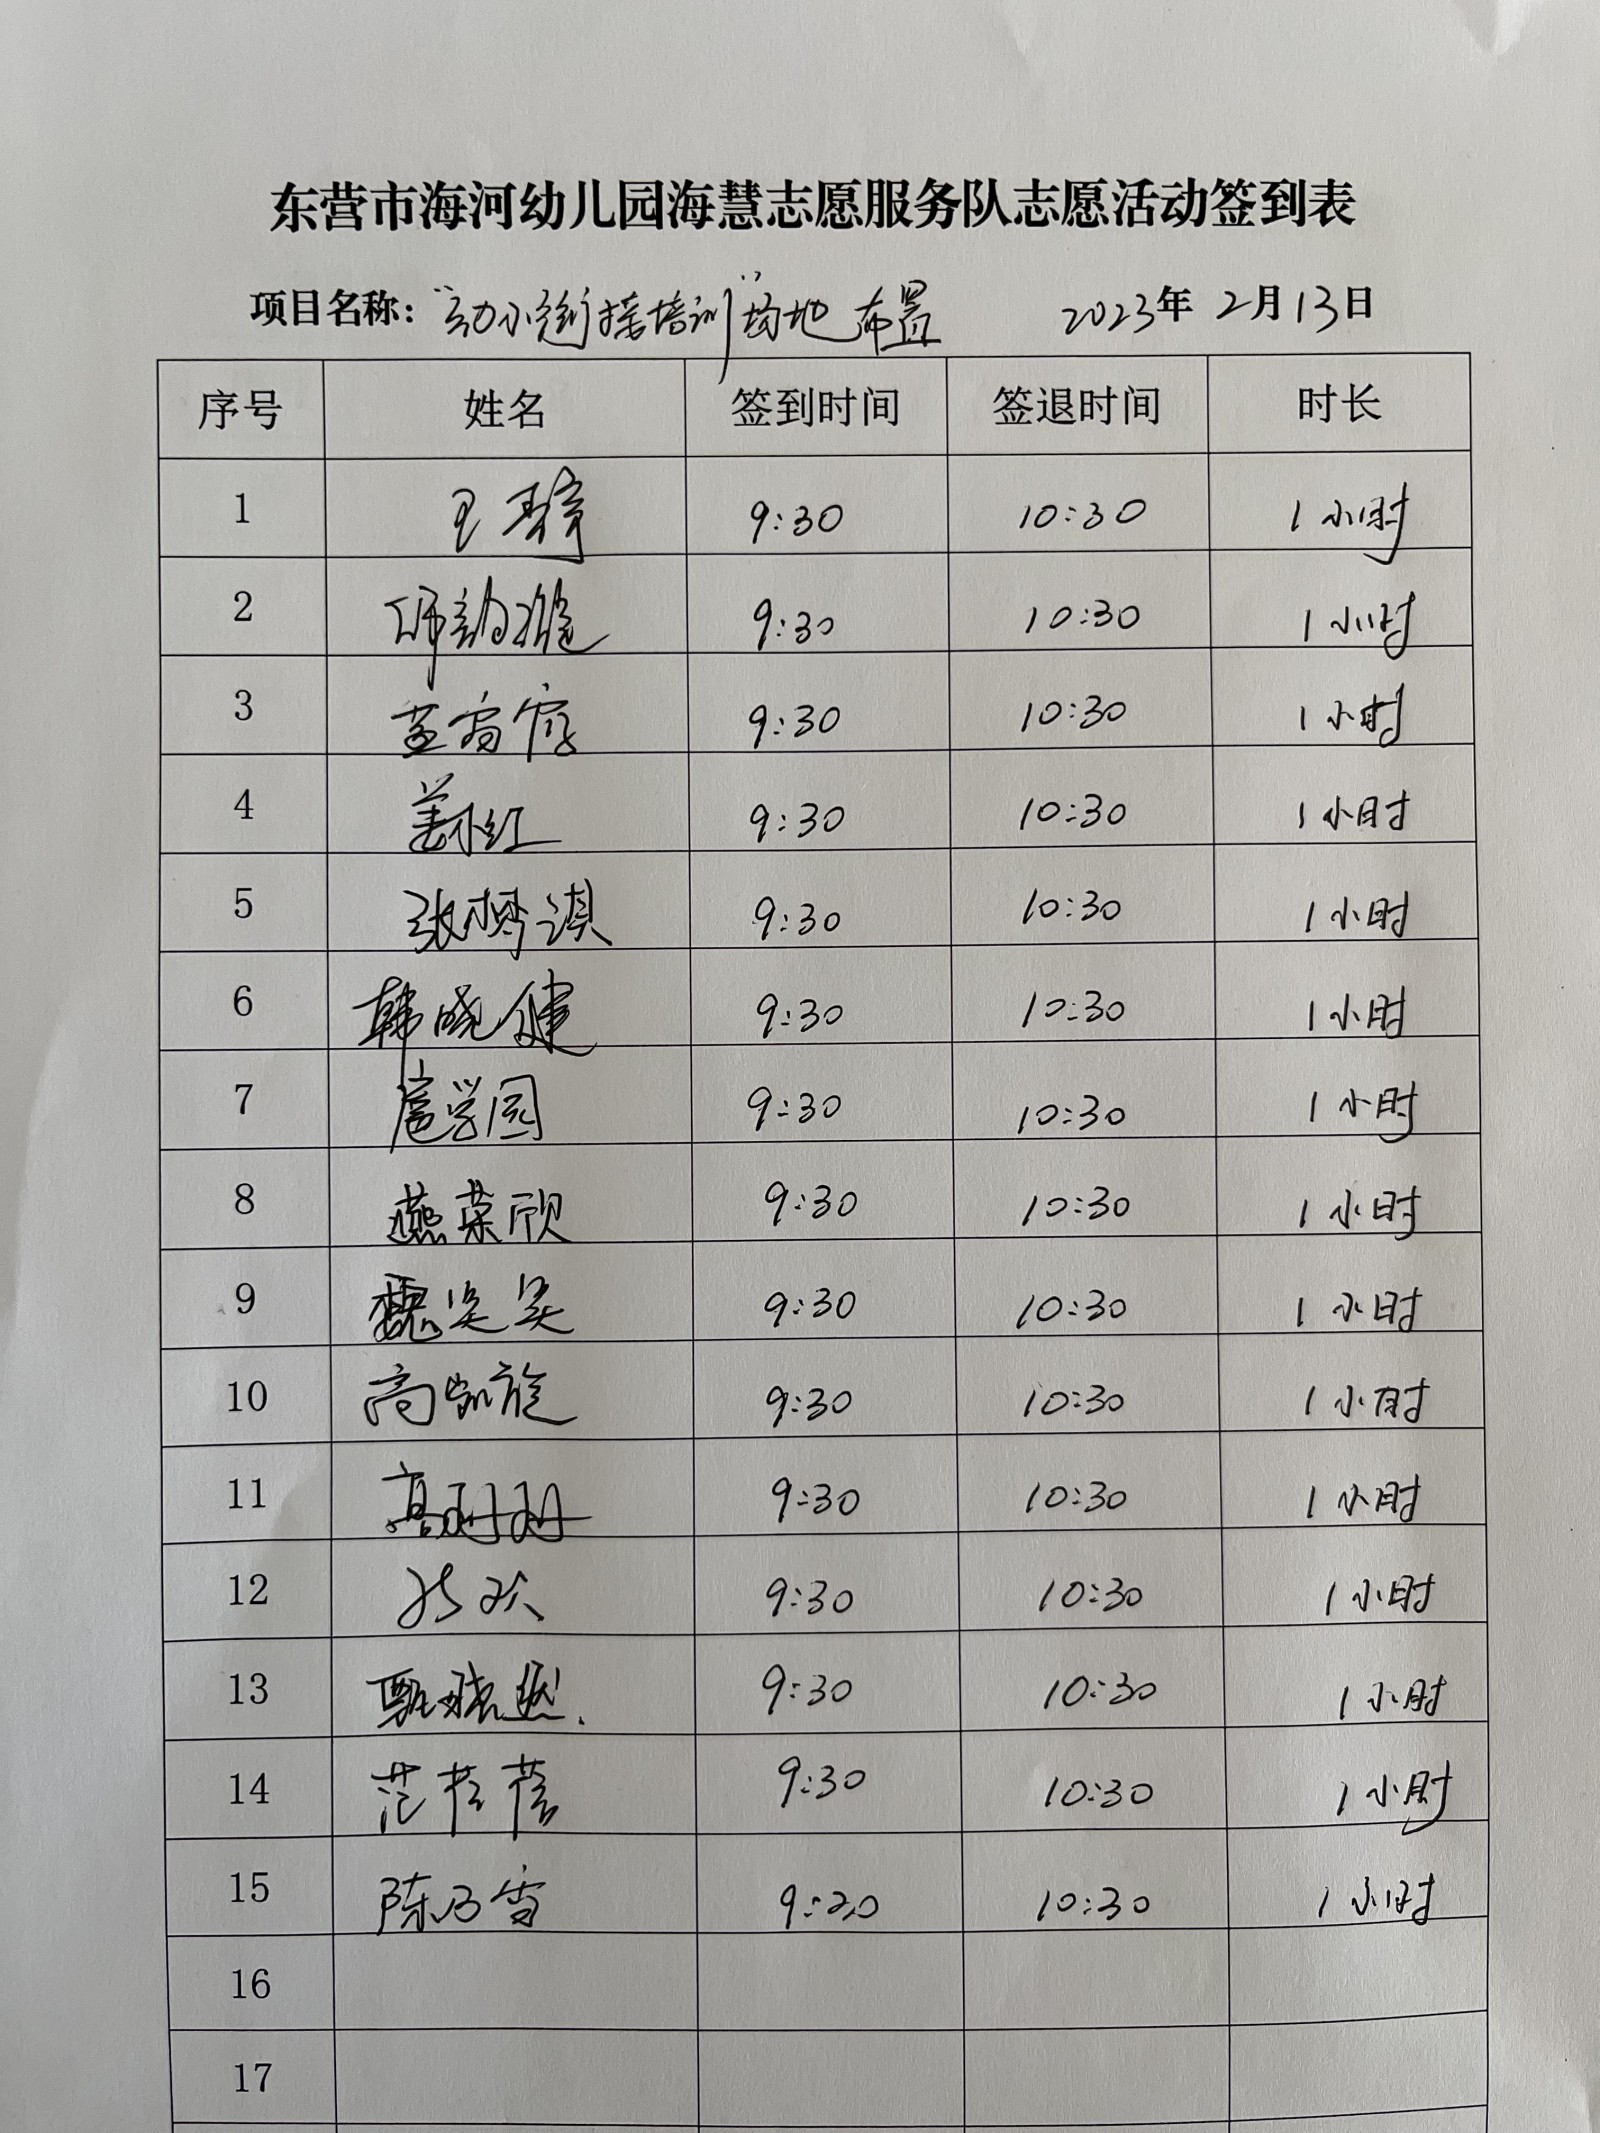 东营市海河幼儿园海慧志愿服务队志愿活动签到表
项目名称：“幼小衔接培训”场地布置 2023年2月13日
序号 姓名 签到时间 签退时间 时长
1 王 9:30 10:30 1小时
2 9:30 10:30 1小时
3 9:30 10:30 1小时
4 姜小红 9:30 10:30 1小时
5 张梦淇 9:30 10:30 1小时
6 韩晓健 9:30 10:30 1小时
7 扈学园 9:30 10:30 1小时
8 燕荣欣 9:30 10:30 1小时
9 魏 9:30 10:30 1小时
10 高凯旋 9:30 10:30 1小时
11 高 9:30 10:30 1小时
12 9:30 10:30 1小时
13 9:30 10:30 1小时
14 范蓓蓓 9:30 10:30 1小时
15 陈乃雪 9:30 10:30 1小时
16
17